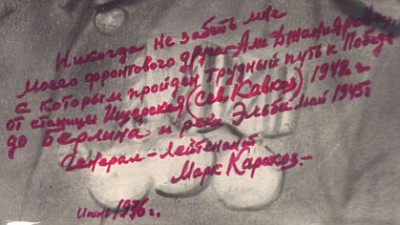 Никогда не забыть мне
Моего фронтового друга - Али
с которым пройден трудный путь к Победе
от станицы Ищорской (Сев. Кавказ) 1942 г.
до Берлина и реки Эльба май 1945г
Генерал-лейтенант
Марк
Июнь 1976г.